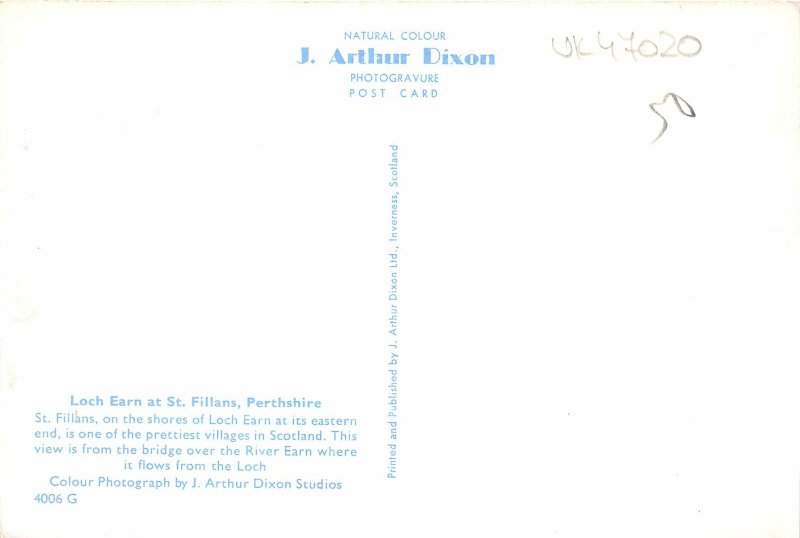 NATURAL COLOUR
J. Arthur Dixon
PHOTOGRAVURE
POST CARD
UK47020
50
Printed and Published by J. Arthur Dixon Ltd., Inverness, Scotland
Loch Earn at St. Fillans, Perthshire
St. Fillans, on the shores of Loch Earn at its eastern
end, is one of the prettiest villages in Scotland. This
view is from the bridge over the River Earn where
it flows from the Loch
Colour Photograph by J. Arthur Dixon Studios
4006 G